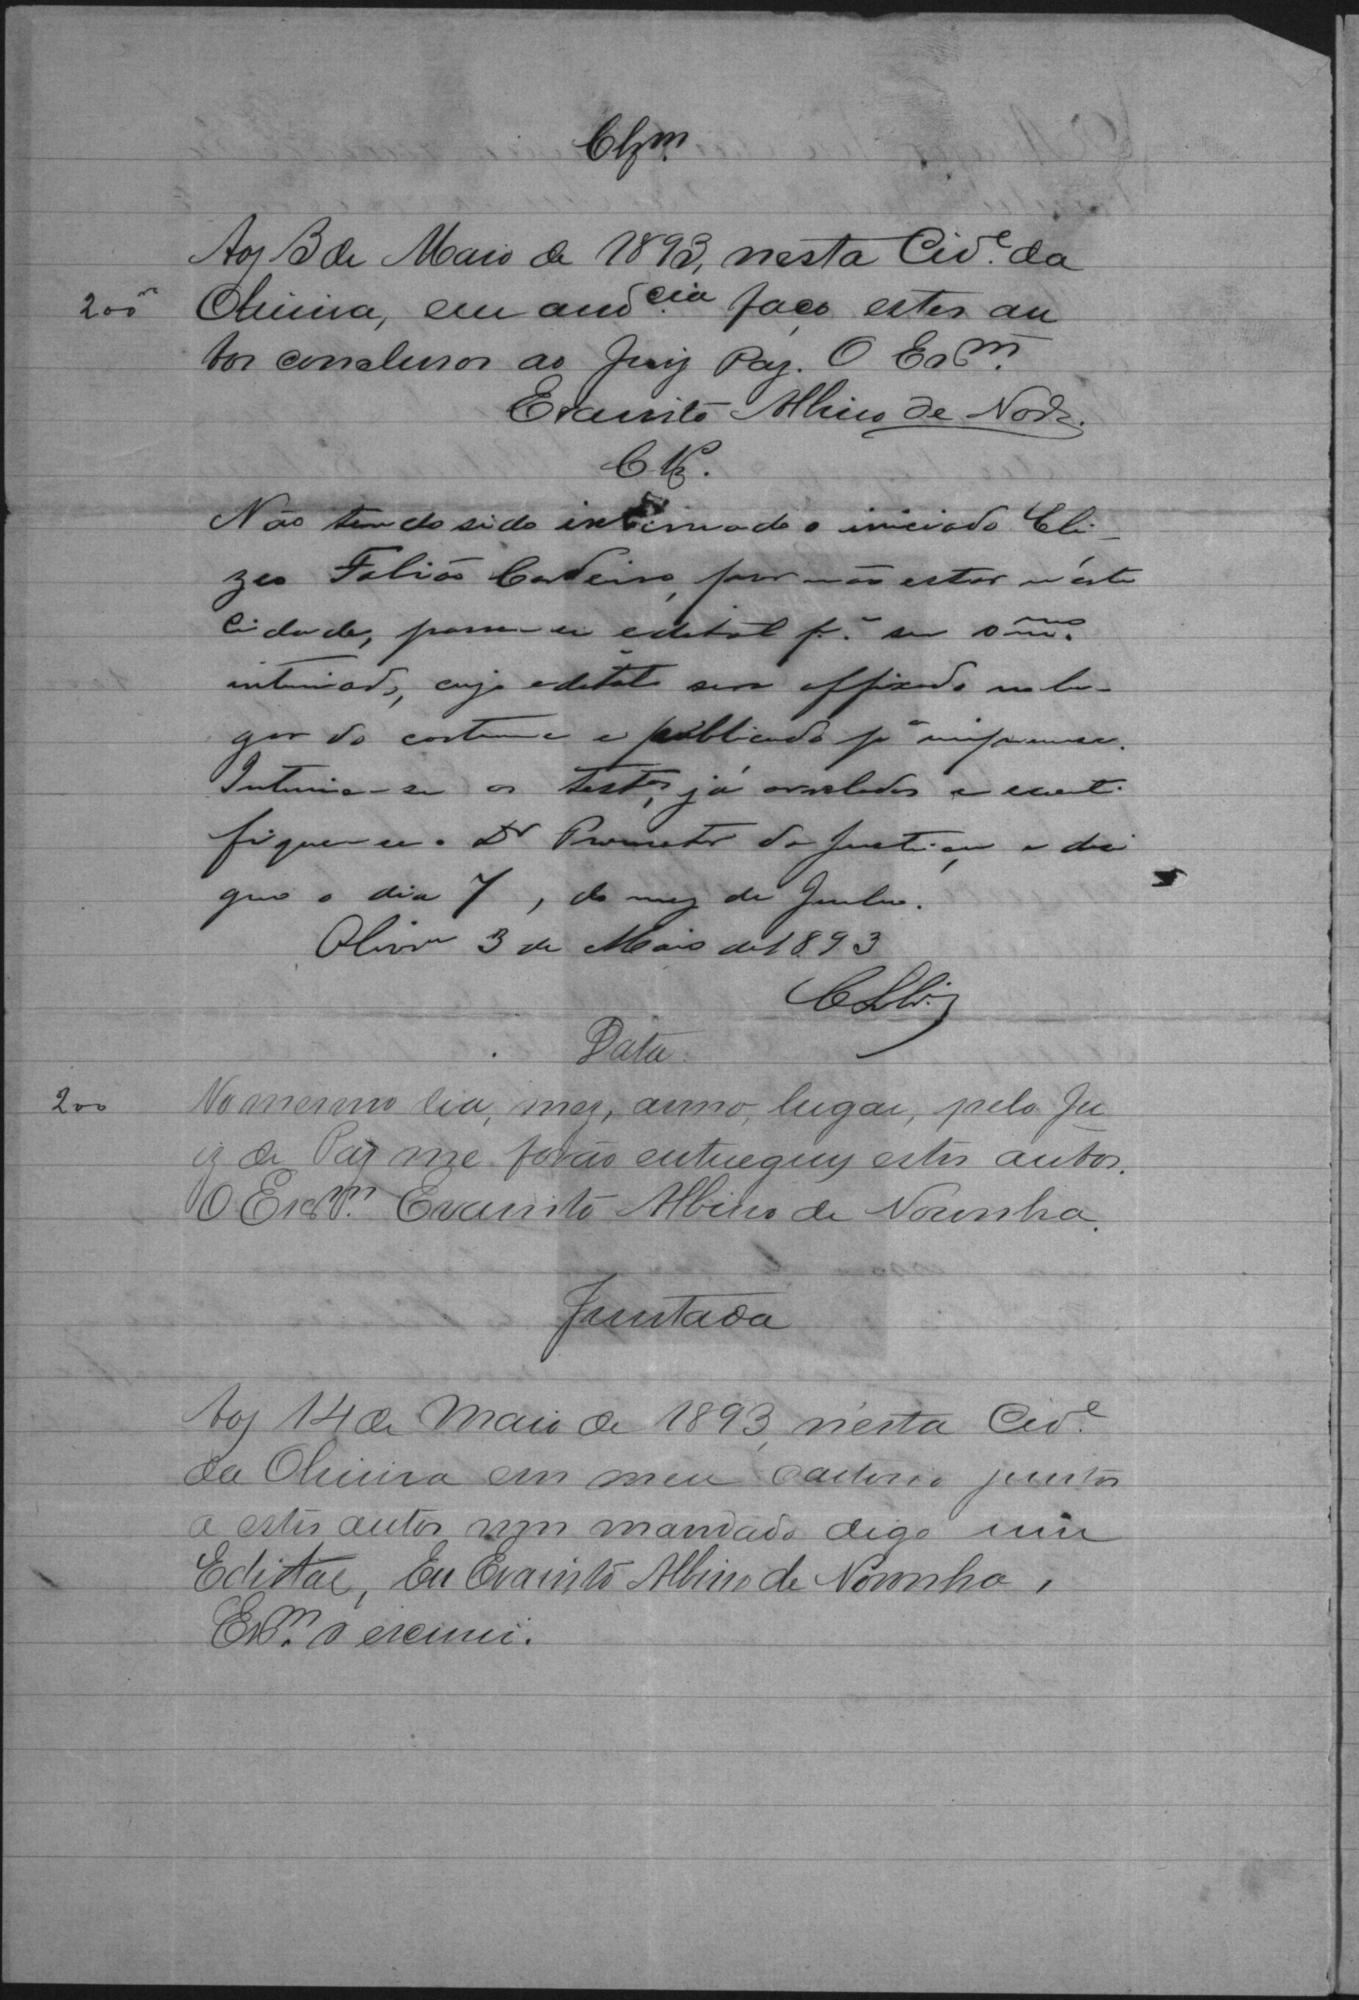 Clzm.
Aos 3 de Maio de 1893, nesta Cid.e da
200 Oliveira, em aud.cia faço estes au
tos conclusos ao Juiz Paz. O Escm.
Evaristo Albino de Nor.a
Clz.
Não tendo sido intimado o iniciado Eli-
zeo Fabião Cordeiro, por não estar n'esta
cidade, passe-se edital p.a ser o mmo.
intimado, cujo edital será affixado no lu-
gar do costume e publicado p.a imprensa.
Intime-se as test.as já arroladas e scenti
fique-se o Dr Promotor da Justiça, e dei
guo o dia 7, do mez de Junho.
Olivra 3 de Maio de 1893
Data
200 No mesmo dia, mez, anno, lugar, pelo Ju
iz de Paz me forão entregues estes autos.
O Escm. Evaristo Albino de Noronha.
Juntada
Aos 14 de Maio de 1893, n'esta Cid.e
da Oliveira em meu cartorio junto
a estes autos um mandado digo um
Edittal, Eu Evaristo Albino de Noronha,
Escm. o escrevi.